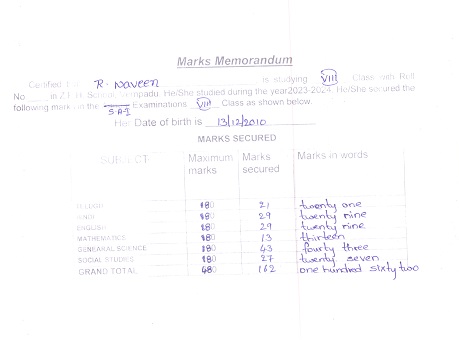 Marks Memorandum
Certified R. Naveen is studying VIII Class with Roll
No in Z.P.H. School He/She studied during the year2023-2024. He/She secured the
following mark in the SA-I Examinations VIII Class as shown below.
Her Date of birth is 13/12/2010
MARKS SECURED
SUBJECT Maximum marks Marks secured Marks in words
TELUGU 80 21 twenty one
HINDI 80 29 twenty nine
ENGLISH 80 29 twenty nine
MATHEMATICS 80 13 thirteen
GENEARAL SCIENCE 80 43 fourty three
SOCIAL STUDIES 80 27 twenty seven
GRAND TOTAL 480 162 one hundred sixty two